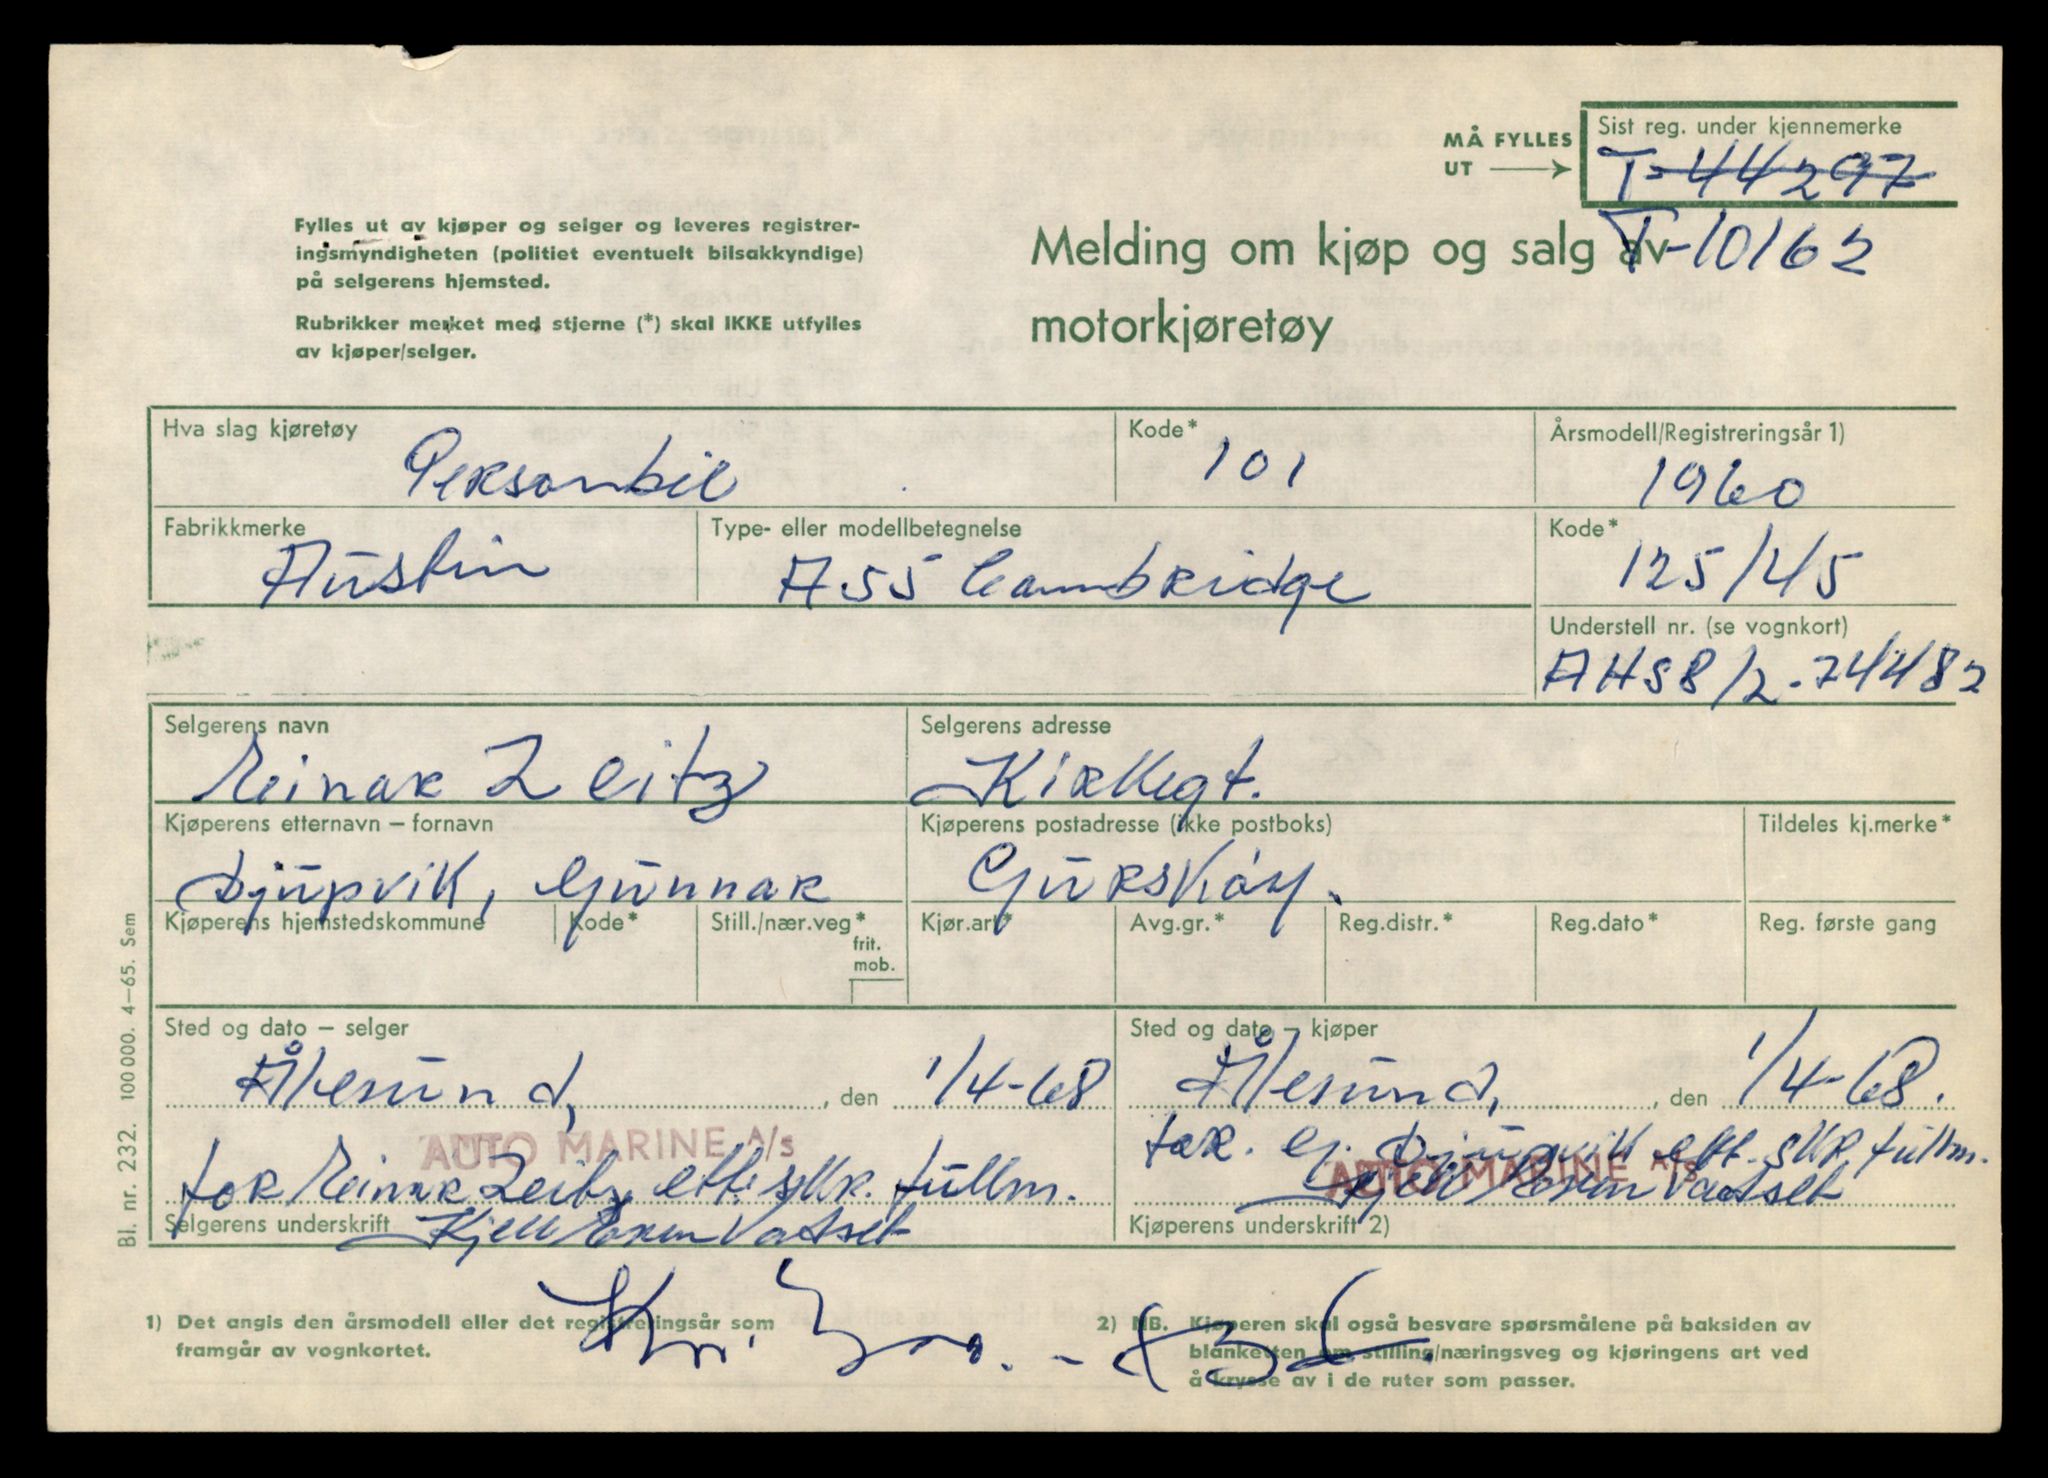 MÅ FYLLES UT
Sist reg. under kjennemerke
T-44297
T-10162
Fylles ut av kjøper og selger og leveres registrer-
ingsmyndigheten (politiet eventuelt bilsakkyndige)
på selgerens hjemsted.
Rubrikker merket med stjerne (*) skal IKKE utfylles
av kjøper/selger.
Melding om kjøp og salg av
motorkjøretøy
Hva slag kjøretøy
Personbil
Kode*
101
Årsmodell/Registreringsår 1)
1960
Fabrikkmerke
Austin
Type- eller modellbetegnelse
A55 Cambridge
Kode*
125/45
Understell nr. (se vognkort)
AHS8/2-74482
Selgerens navn
Reinar Zeitz
Selgerens adresse
Kirkegt.
Kjøperens etternavn – fornavn
Djupvik, Gunnar
Kjøperens postadresse (ikke postboks)
Gurskøy.
Tildeles kj.merke*
Kjøperens hjemstedskommune
Kode*
Still./nær.veg*
frit.
mob.
Kjør.art*
Avg.gr.*
Reg.distr.*
Reg.dato*
Reg. første gang
Sted og dato – selger
Ålesund, den 1/4-68
AUTO MARINE A/S
for Reinar Zeitz ett. skr. fullm.
Selgerens underskrift Kjell Vadset
Sted og dato – kjøper
Ålesund, den 1/4-68.
for. G. Djupvik ett. skr. fullm.
AUTO MARINE A/S
Kjell Vadset
Kjøperens underskrift 2)
Kr.
1) Det angis den årsmodell eller det registreringsår som
framgår av vognkortet.
2) NB. Kjøperen skal også besvare spørsmålene på baksiden av
blanketten om stilling/næringsveg og kjøringens art ved
å krysse av i de ruter som passer.
Bl. nr. 232. 100 000. 4–65. Sem